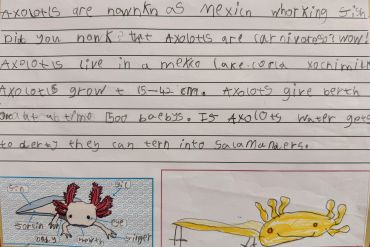 Axolotls are nownkn as Mexicn whorking fish
Did you nonk? that Axolotls are carnivorosos wow!
Axolotls live in a mexco lake. corla xochimilc
Axolotls grow t 15-42 cm. Axolotls give berth
at at time 1500 baebys. If Axolots water gets
to derty they can tern into Salamanders.
gil
eye
body
mowth
finger